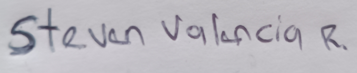 Steven Valencia R.